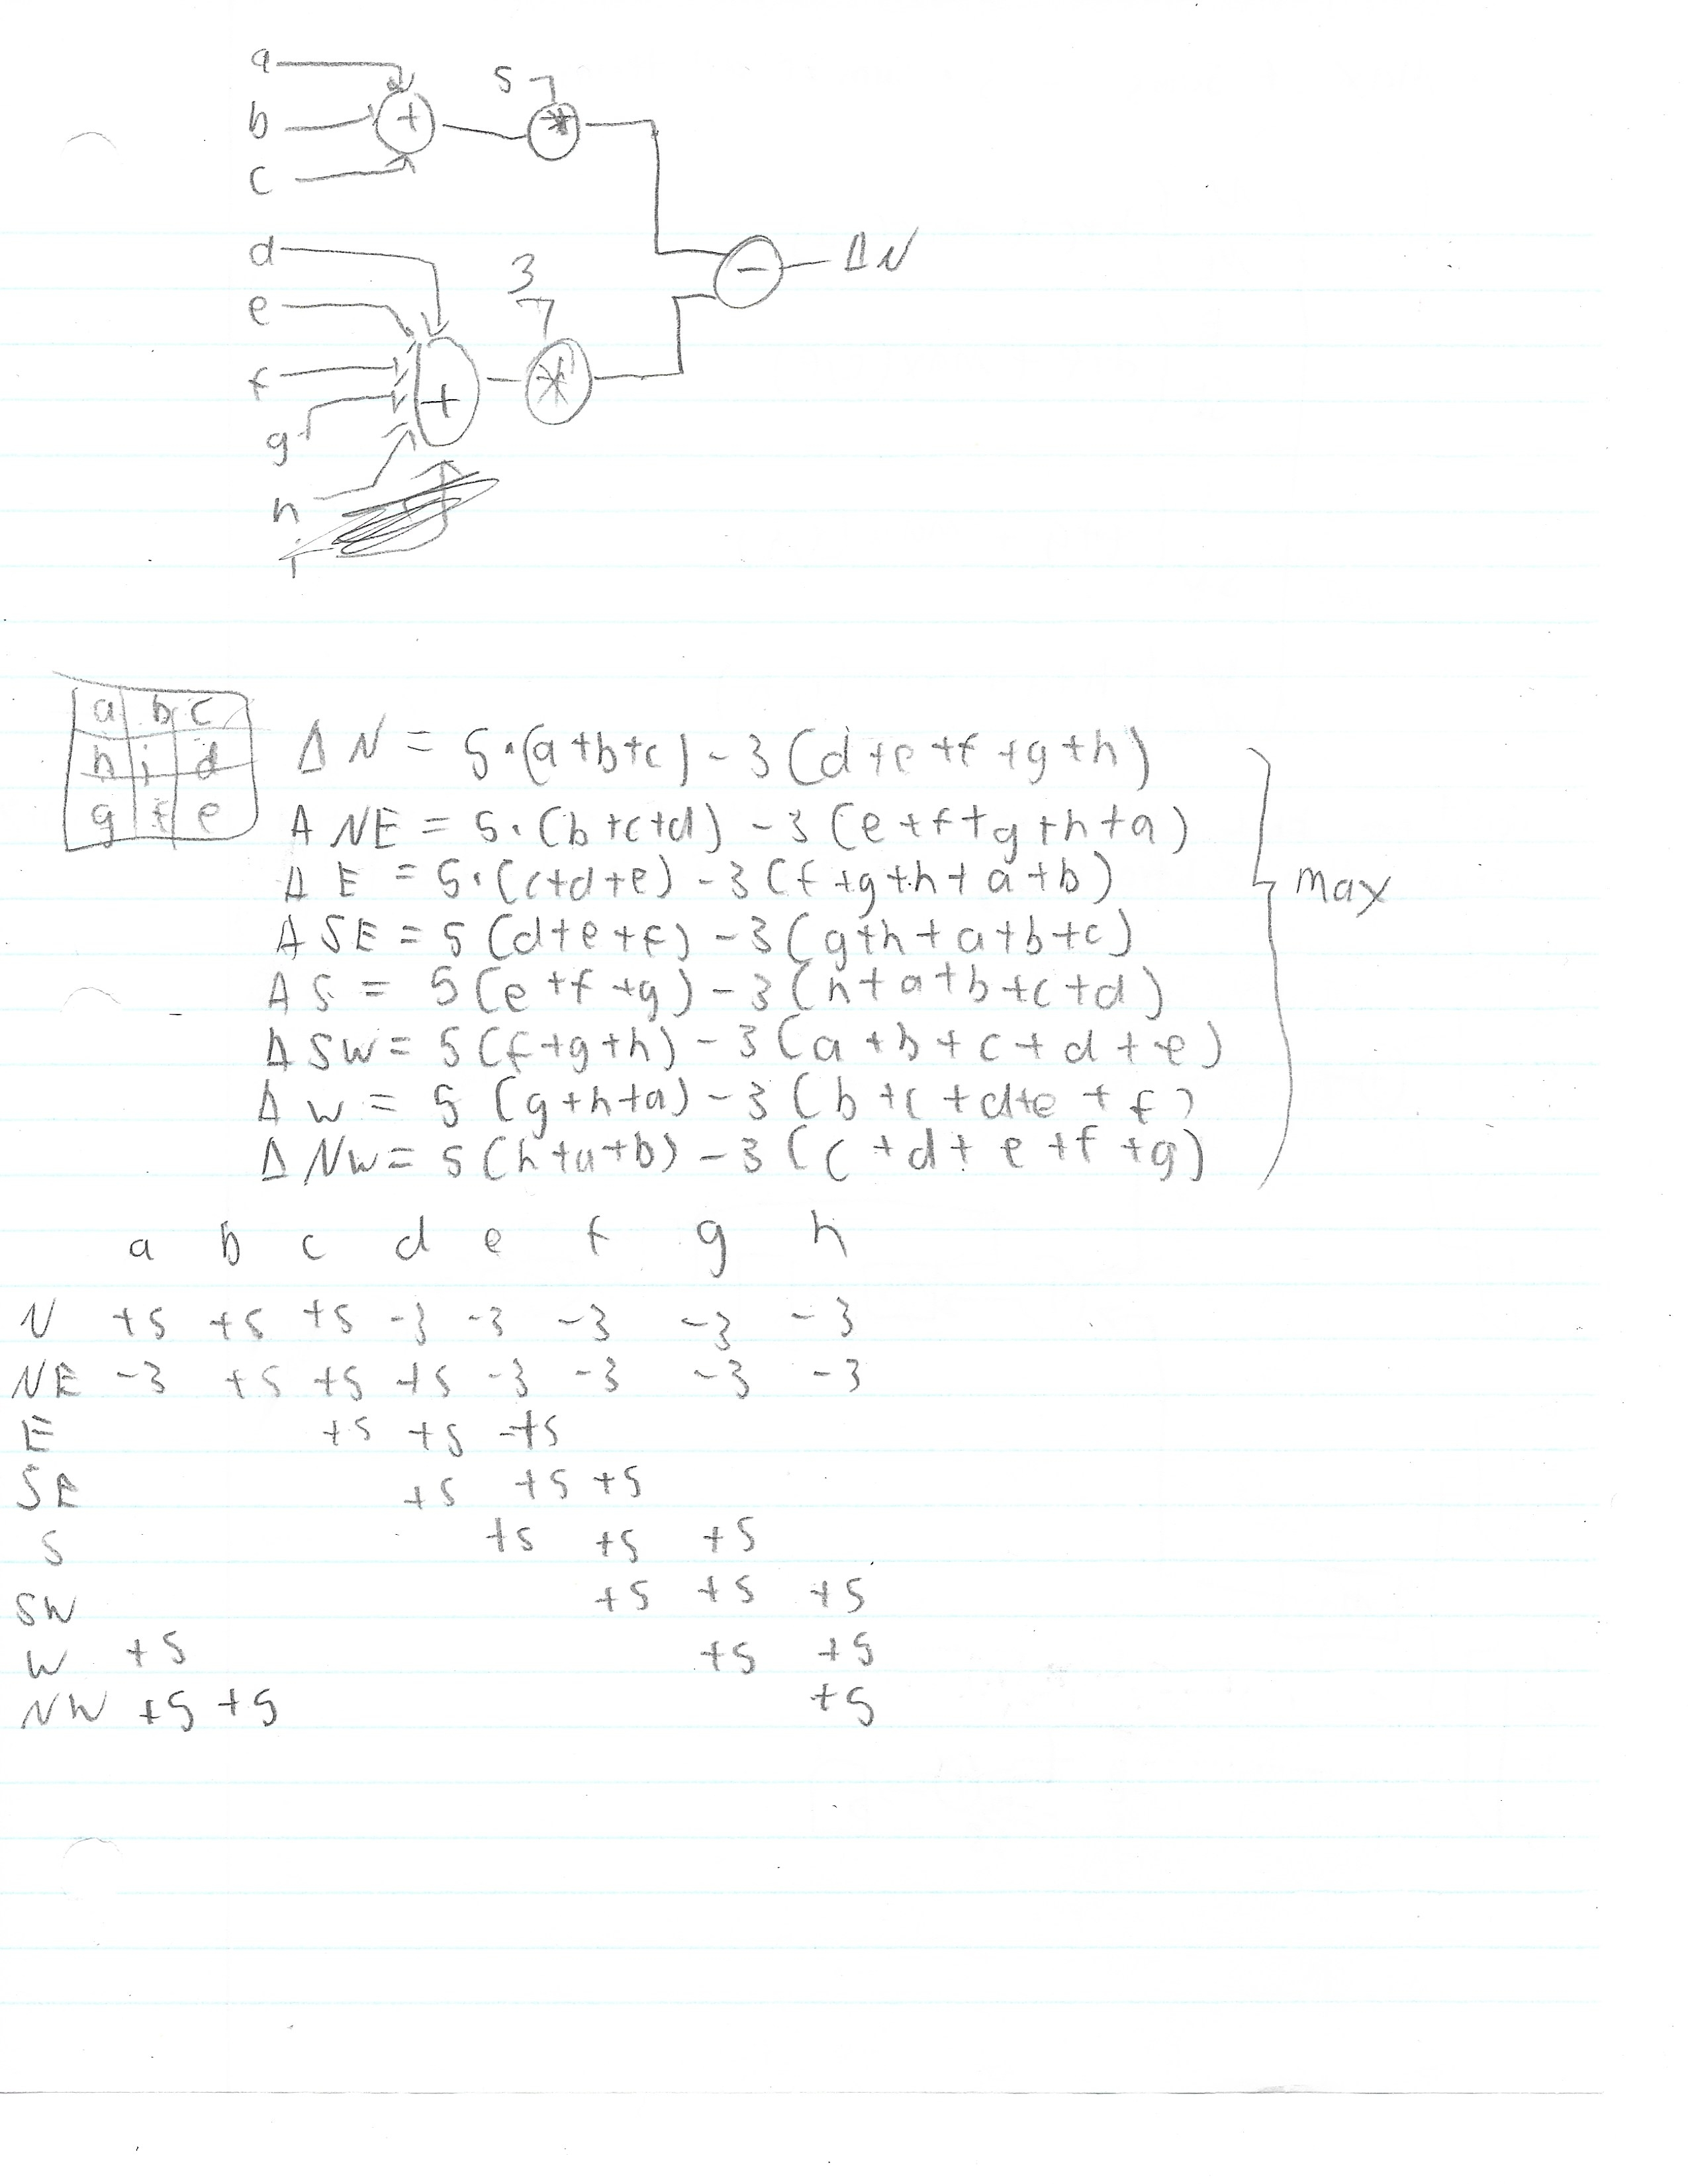 a
5
b + *
c
d
ΔN
-
e
3
f
+ *
g
h
i
a b c
h i d
g f e
ΔN = 5·(a+b+c) - 3(d+e+f+g+h)
ΔNE = 5·(b+c+d) - 3(e+f+g+h+a)
ΔE = 5·(c+d+e) - 3(f+g+h+a+b)
ΔSE = 5(d+e+f) - 3(g+h+a+b+c)
ΔS = 5(e+f+g) - 3(h+a+b+c+d)
ΔSW = 5(f+g+h) - 3(a+b+c+d+e)
ΔW = 5(g+h+a) - 3(b+c+d+e+f)
ΔNW = 5(h+a+b) - 3(c+d+e+f+g)
max
a b c d e f g h
N +5 +5 +5 -3 -3 -3 -3 -3
NE -3 +5 +5 +5 -3 -3 -3 -3
E +5 +5 +5
SE +5 +5 +5
S +5 +5 +5
SW +5 +5 +5
W +5 +5 +5
NW +5 +5 +5